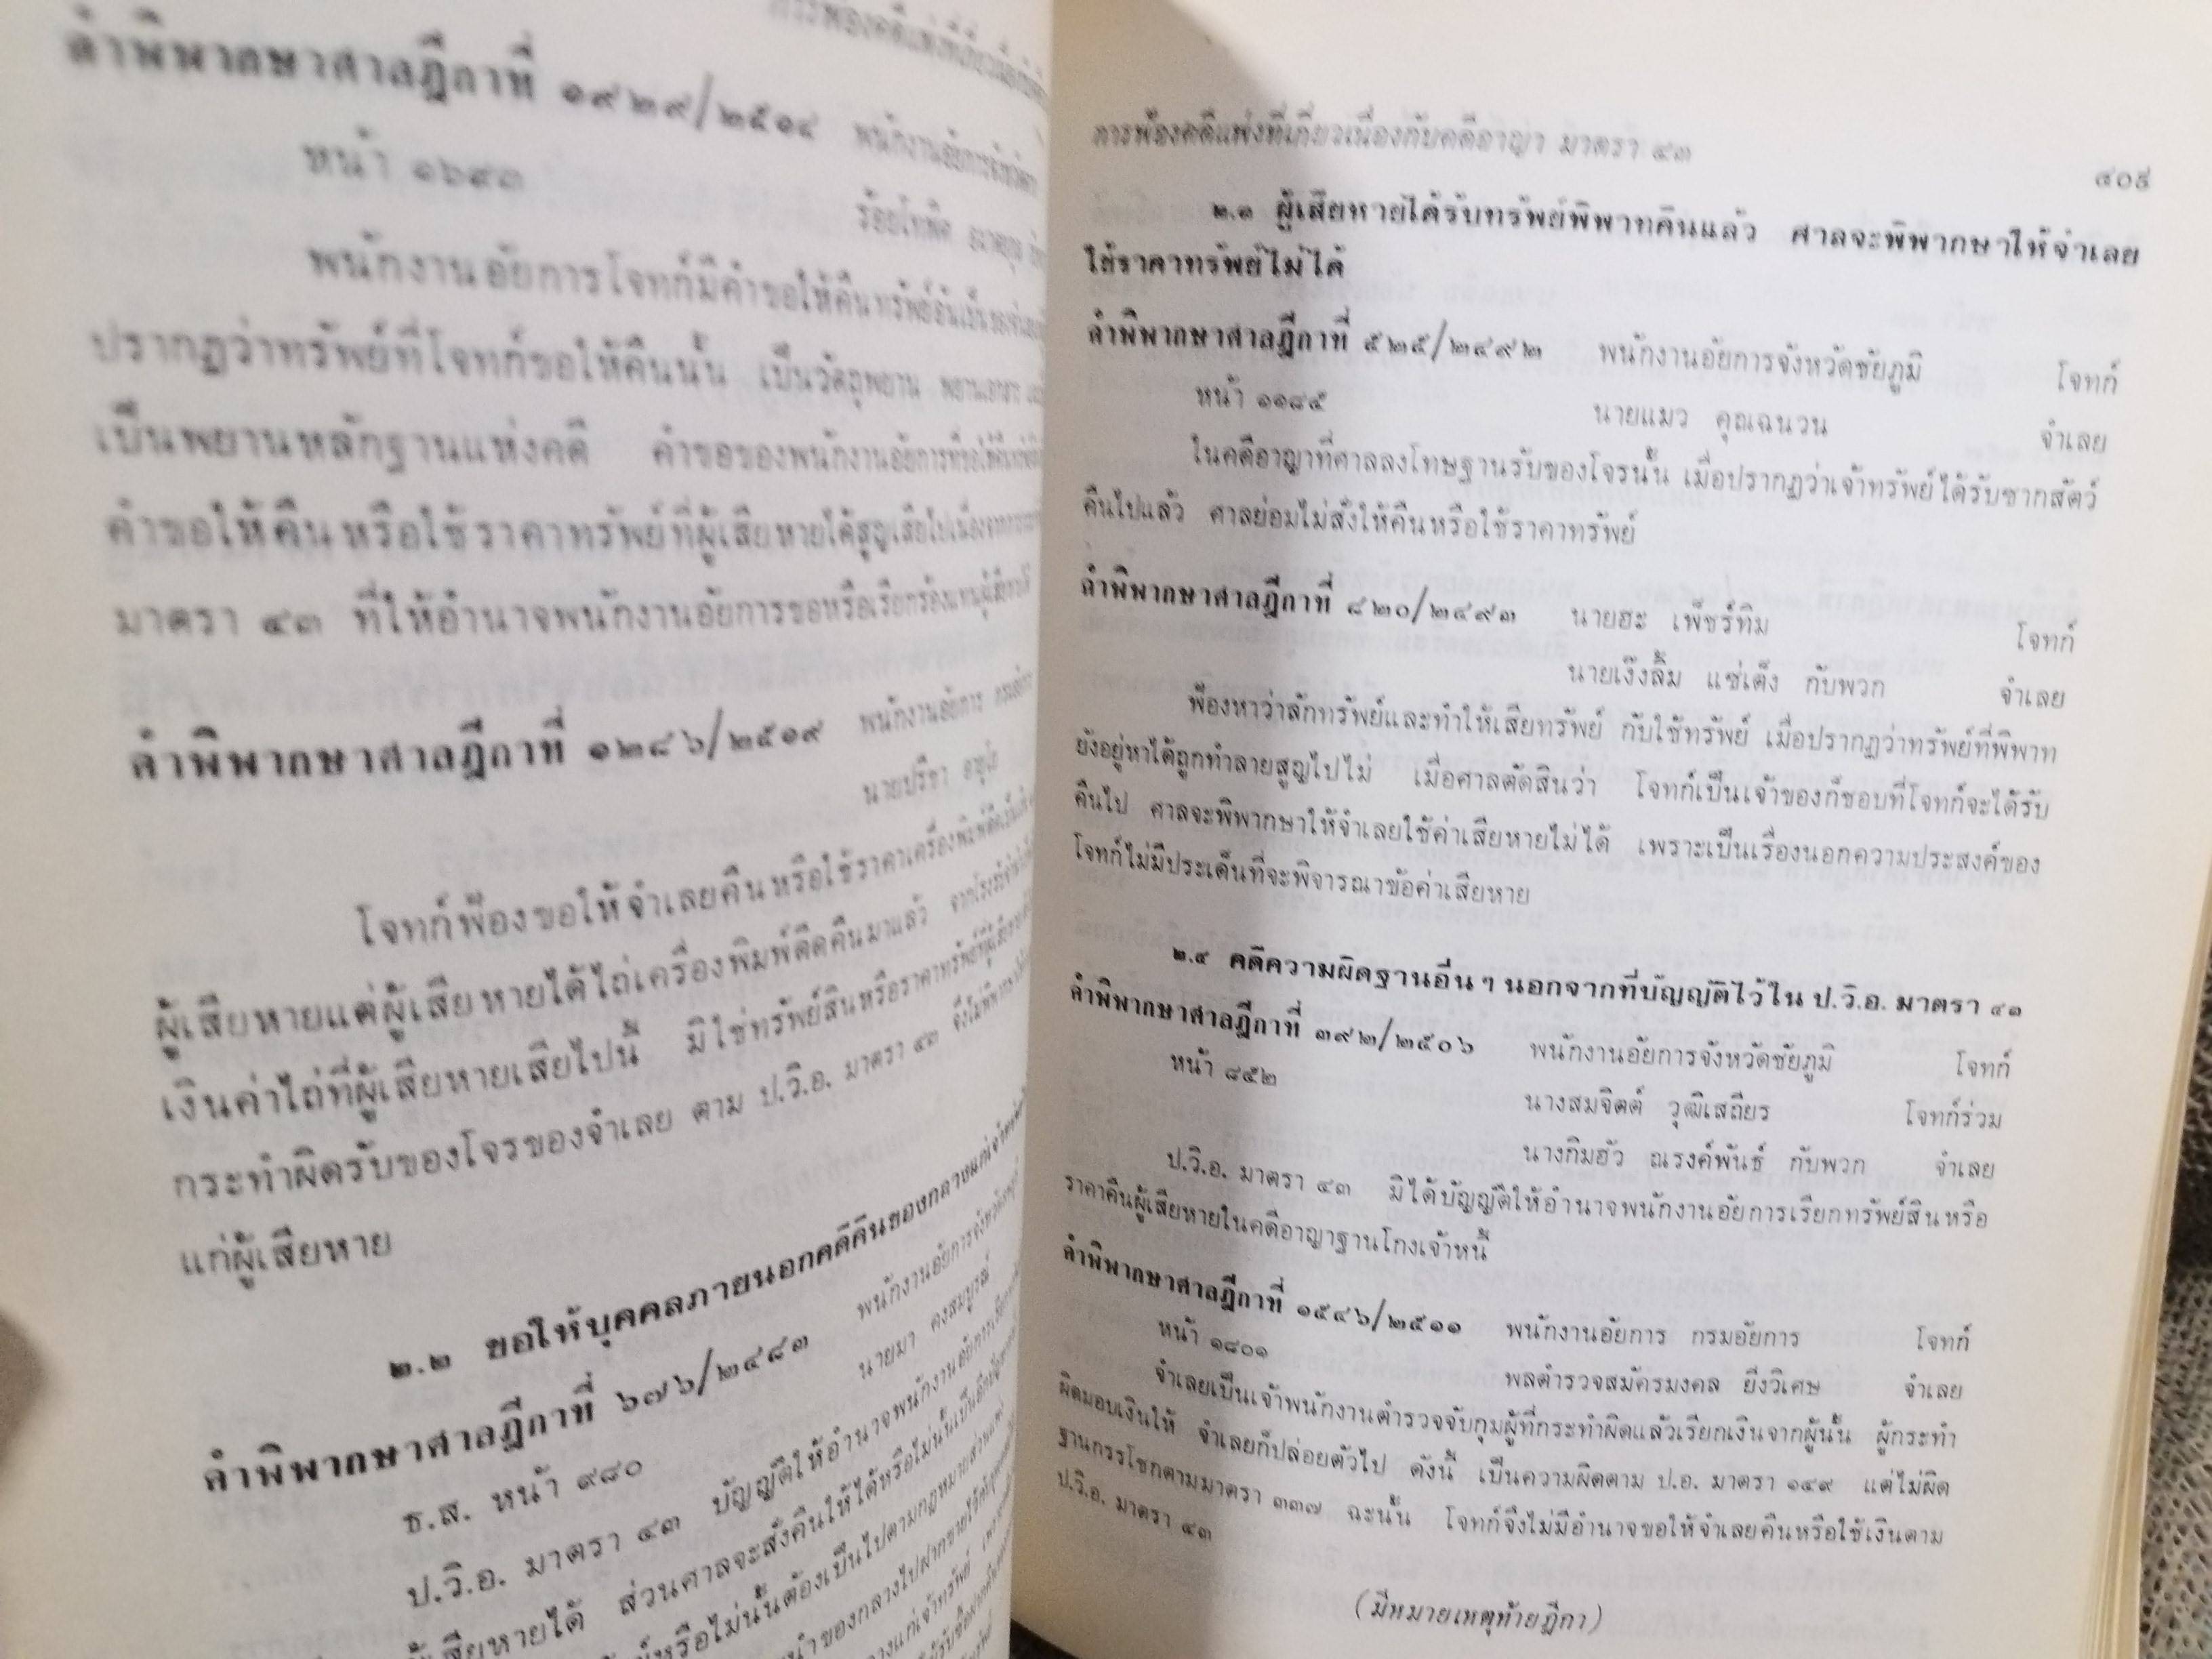 คำพิพากษาศาลฎีกาที่ ๑๙๒๙/๒๕๑๔ พนักงานอัยการ
หน้า ๑๖๙๓
ร้อยโทพิศ
พนักงานอัยการโจทก์มีคำขอให้คืนทรัพย์อัน
ปรากฏว่าทรัพย์ที่โจทก์ขอให้คืนนั้น เป็นวัตถุพยาน
เป็นพยานหลักฐานแห่งคดี คำขอของพนักงานอัยการที่ขอให้คืน
คำขอให้คืนหรือใช้ราคาทรัพย์ที่ผู้เสียหายได้สูญเสียไปเนื่องจากการ
มาตรา ๔๓ ที่ให้อำนาจพนักงานอัยการขอหรือเรียกร้องแทนผู้เสียหายได้
คำพิพากษาศาลฎีกาที่ ๑๒๘๖/๒๕๑๙ พนักงานอัยการ กรมอัยการ
นายปรีชา
โจทก์ฟ้องขอให้จำเลยคืนหรือใช้ราคาเครื่องพิมพ์ดีด
ผู้เสียหายแต่ผู้เสียหายได้ไถ่เครื่องพิมพ์ดีดคืนมาแล้ว จากโรงรับจำนำ
เงินค่าไถ่ที่ผู้เสียหายเสียไปนี้ มิใช่ทรัพย์สินหรือราคาทรัพย์ที่ผู้เสียหาย
กระทำผิดรับของโจรของจำเลย ตาม ป.วิ.อ. มาตรา ๔๓ จึงไม่
แก่ผู้เสียหาย
๒.๒ ขอให้บุคคลภายนอกคดีคืนของกลางแก่เจ้าทรัพย์
คำพิพากษาศาลฎีกาที่ ๖๗๖/๒๔๘๓ พนักงานอัยการจังหวัด
ธ.ส. หน้า ๙๘๐ นายมา คงสมบูรณ์
ป.วิ.อ. มาตรา ๔๓ บัญญัติให้อำนาจพนักงานอัยการเรียก
ผู้เสียหายได้ ส่วนศาลจะสั่งคืนให้ได้หรือไม่นั้นเป็นอีก
หรือไม่นั้นต้องเป็นไปตามกฎหมายส่วนแพ่ง
นำของกลางไปฝากขายไว้กับ
การฟ้องคดีแพ่งที่เกี่ยวเนื่องกับคดีอาญา มาตรา ๔๓
๔๐๕
๒.๓ ผู้เสียหายได้รับทรัพย์พิพาทคืนแล้ว ศาลจะพิพากษาให้จำเลย
ใช้ราคาทรัพย์ไม่ได้
คำพิพากษาศาลฎีกาที่ ๕๒๕/๒๔๙๒ พนักงานอัยการจังหวัดชัยภูมิ โจทก์
หน้า ๑๑๘๕ นายแมว คุณฉนวน จำเลย
ในคดีอาญาที่ศาลลงโทษฐานรับของโจรนั้น เมื่อปรากฏว่าเจ้าทรัพย์ได้รับซากสัตว์
คืนไปแล้ว ศาลย่อมไม่สั่งให้คืนหรือใช้ราคาทรัพย์
คำพิพากษาศาลฎีกาที่ ๘๒๐/๒๔๙๓ นายฮะ เพ็ชร์ทิม โจทก์
นายเง๊งลิ้ม แซ่เต็ง กับพวก จำเลย
ฟ้องหาว่าลักทรัพย์และทำให้เสียทรัพย์ กับใช้ทรัพย์ เมื่อปรากฏว่าทรัพย์ที่พิพาท
ยังอยู่หาได้ถูกทำลายสูญไปไม่ เมื่อศาลตัดสินว่า โจทก์เป็นเจ้าของก็ชอบที่โจทก์จะได้รับ
คืนไป ศาลจะพิพากษาให้จำเลยใช้ค่าเสียหายไม่ได้ เพราะเป็นเรื่องนอกความประสงค์ของ
โจทก์ไม่มีประเด็นที่จะพิจารณาข้อค่าเสียหาย
๒.๔ คดีความผิดฐานอื่น ๆ นอกจากที่บัญญัติไว้ใน ป.วิ.อ. มาตรา ๔๑
คำพิพากษาศาลฎีกาที่ ๓๙๒/๒๕๐๖ พนักงานอัยการจังหวัดชัยภูมิ โจทก์
หน้า ๘๕๒ นางสมจิตต์ วุฒิเสถียร โจทก์ร่วม
นางกิมฮัว ณรงค์พันธ์ กับพวก จำเลย
ป.วิ.อ. มาตรา ๔๓ มิได้บัญญัติให้อำนาจพนักงานอัยการเรียกทรัพย์สินหรือ
ราคาคืนผู้เสียหายในคดีอาญาฐานโกงเจ้าหนี้
คำพิพากษาศาลฎีกาที่ ๑๕๔๖/๒๕๑๑ พนักงานอัยการ กรมอัยการ โจทก์
หน้า ๑๘๐๑ พลตำรวจสมัครมงคล ยิ่งวิเศษ จำเลย
จำเลยเป็นเจ้าพนักงานตำรวจจับกุมผู้ที่กระทำผิดแล้วเรียกเงินจากผู้นั้น ผู้กระทำ
ผิดมอบเงินให้ จำเลยก็ปล่อยตัวไป ดังนี้ เป็นความผิดตาม ป.อ. มาตรา ๑๔๙ แต่ไม่ผิด
ฐานกรรโชกตามมาตรา ๓๓๗ ฉะนั้น โจทก์จึงไม่มีอำนาจขอให้จำเลยคืนหรือใช้เงินตาม
ป.วิ.อ. มาตรา ๔๓
(มีหมายเหตุท้ายฎีกา)